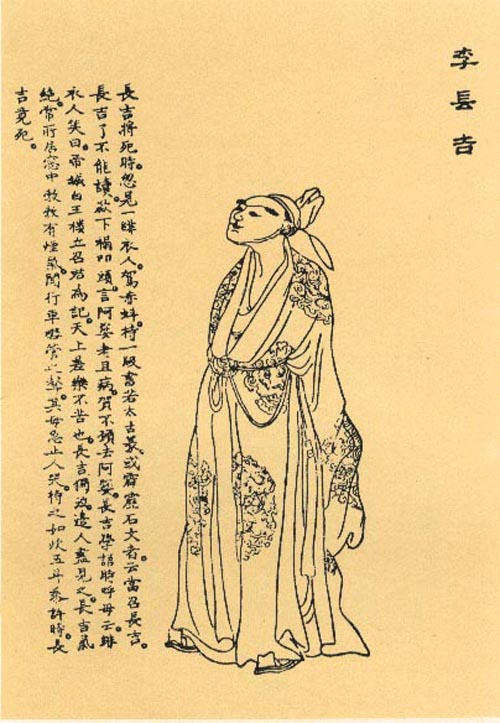 李長吉
長吉將死時。忽見一緋衣人。駕赤虯。持一版書若太古篆。或霹靂石文者。云當召長吉。
長吉了不能讀。欲下榻叩頭。言阿㜷老且病。賀不願去阿㜷。長吉學語時呼母云。緋
衣人笑曰。帝城白玉樓立召君為記。天上差樂不苦也。長吉獨泣。邊人盡見之。長吉氣
絕。常所居窗中勃勃有煙氣。聞行車嘒管之聲。其母急止人哭。待之如炊五斗黍許時。長
吉竟死。